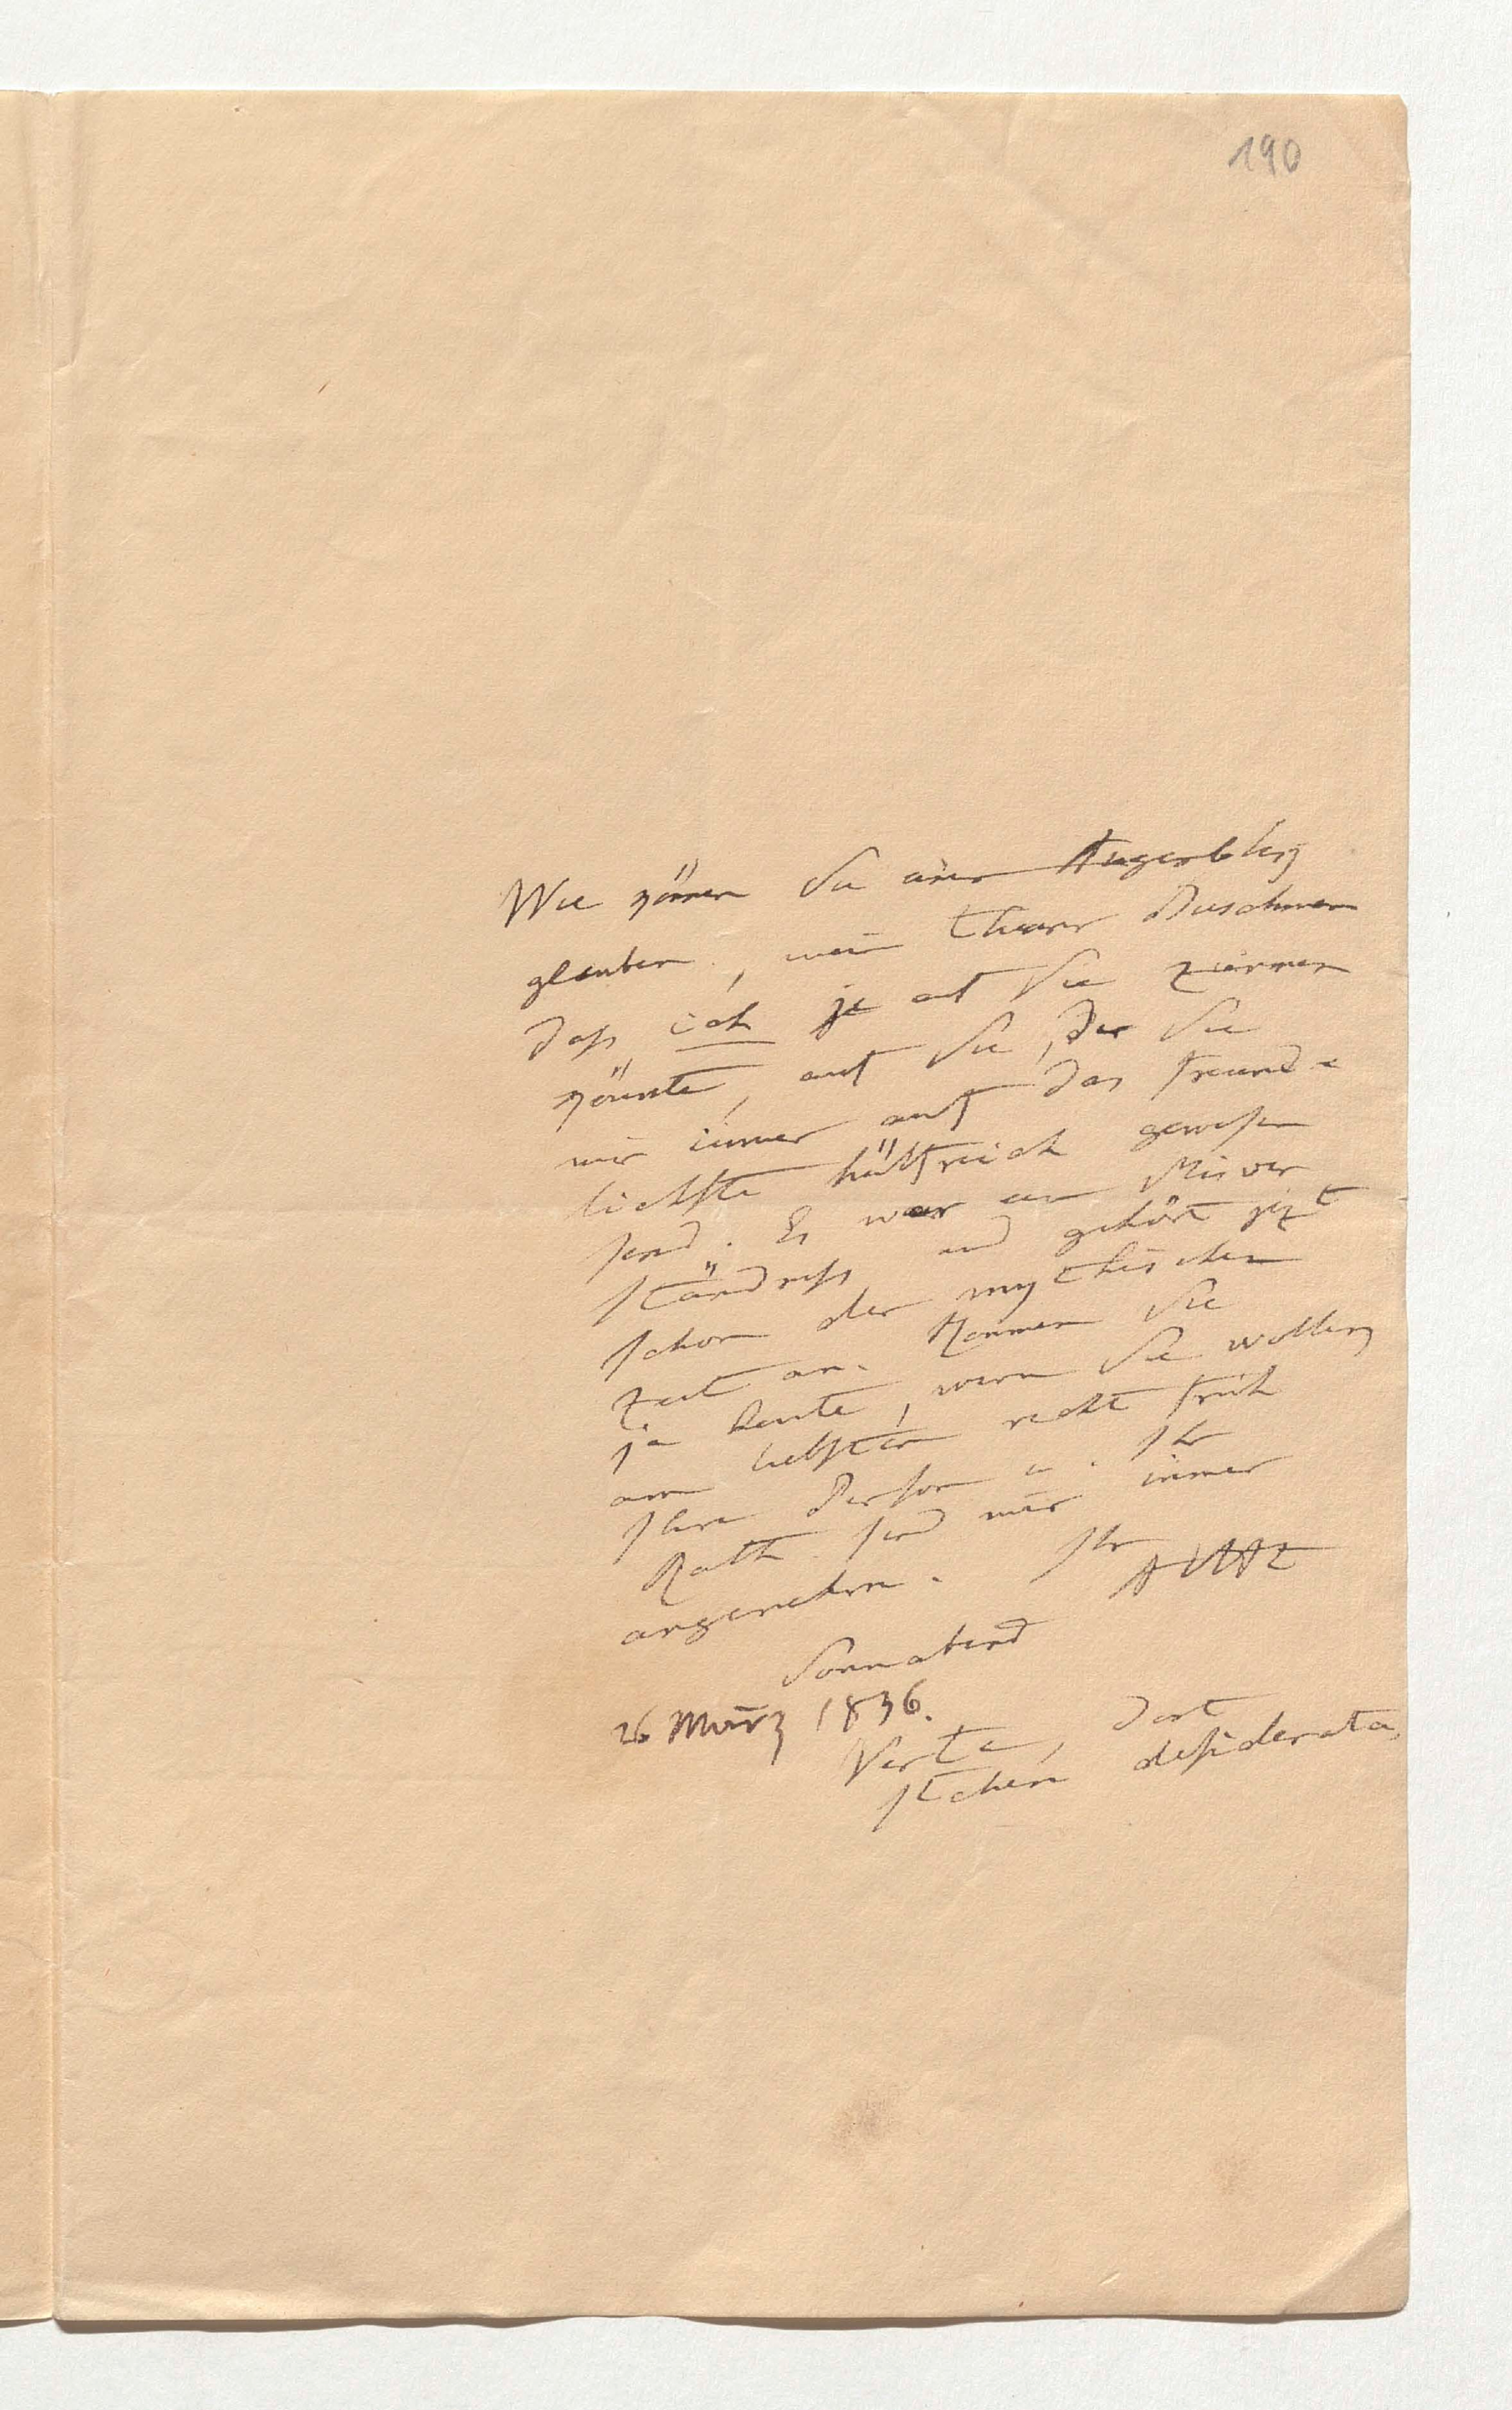 190
Wie können Sie einen Augenblick
glauben, mein theurer Buschmann
daß ich je auf Sie zürnen
könnte, auf Sie, der Sie
mir immer auf das freund-
lichste hülfreich gewesen
sind. Es war ein Misver
ständniß und gehört jezt
schon der mythischen
Zeit an. Kommen Sie
ja heute, wenn Sie wollen
am liebsten recht früh
Ihre Person u. Ihr
Rath sind mir immer
angenehm. Ihr
AVHt
Sonnabend
26 März 1836.
Verte, dort
stehen desiderata,